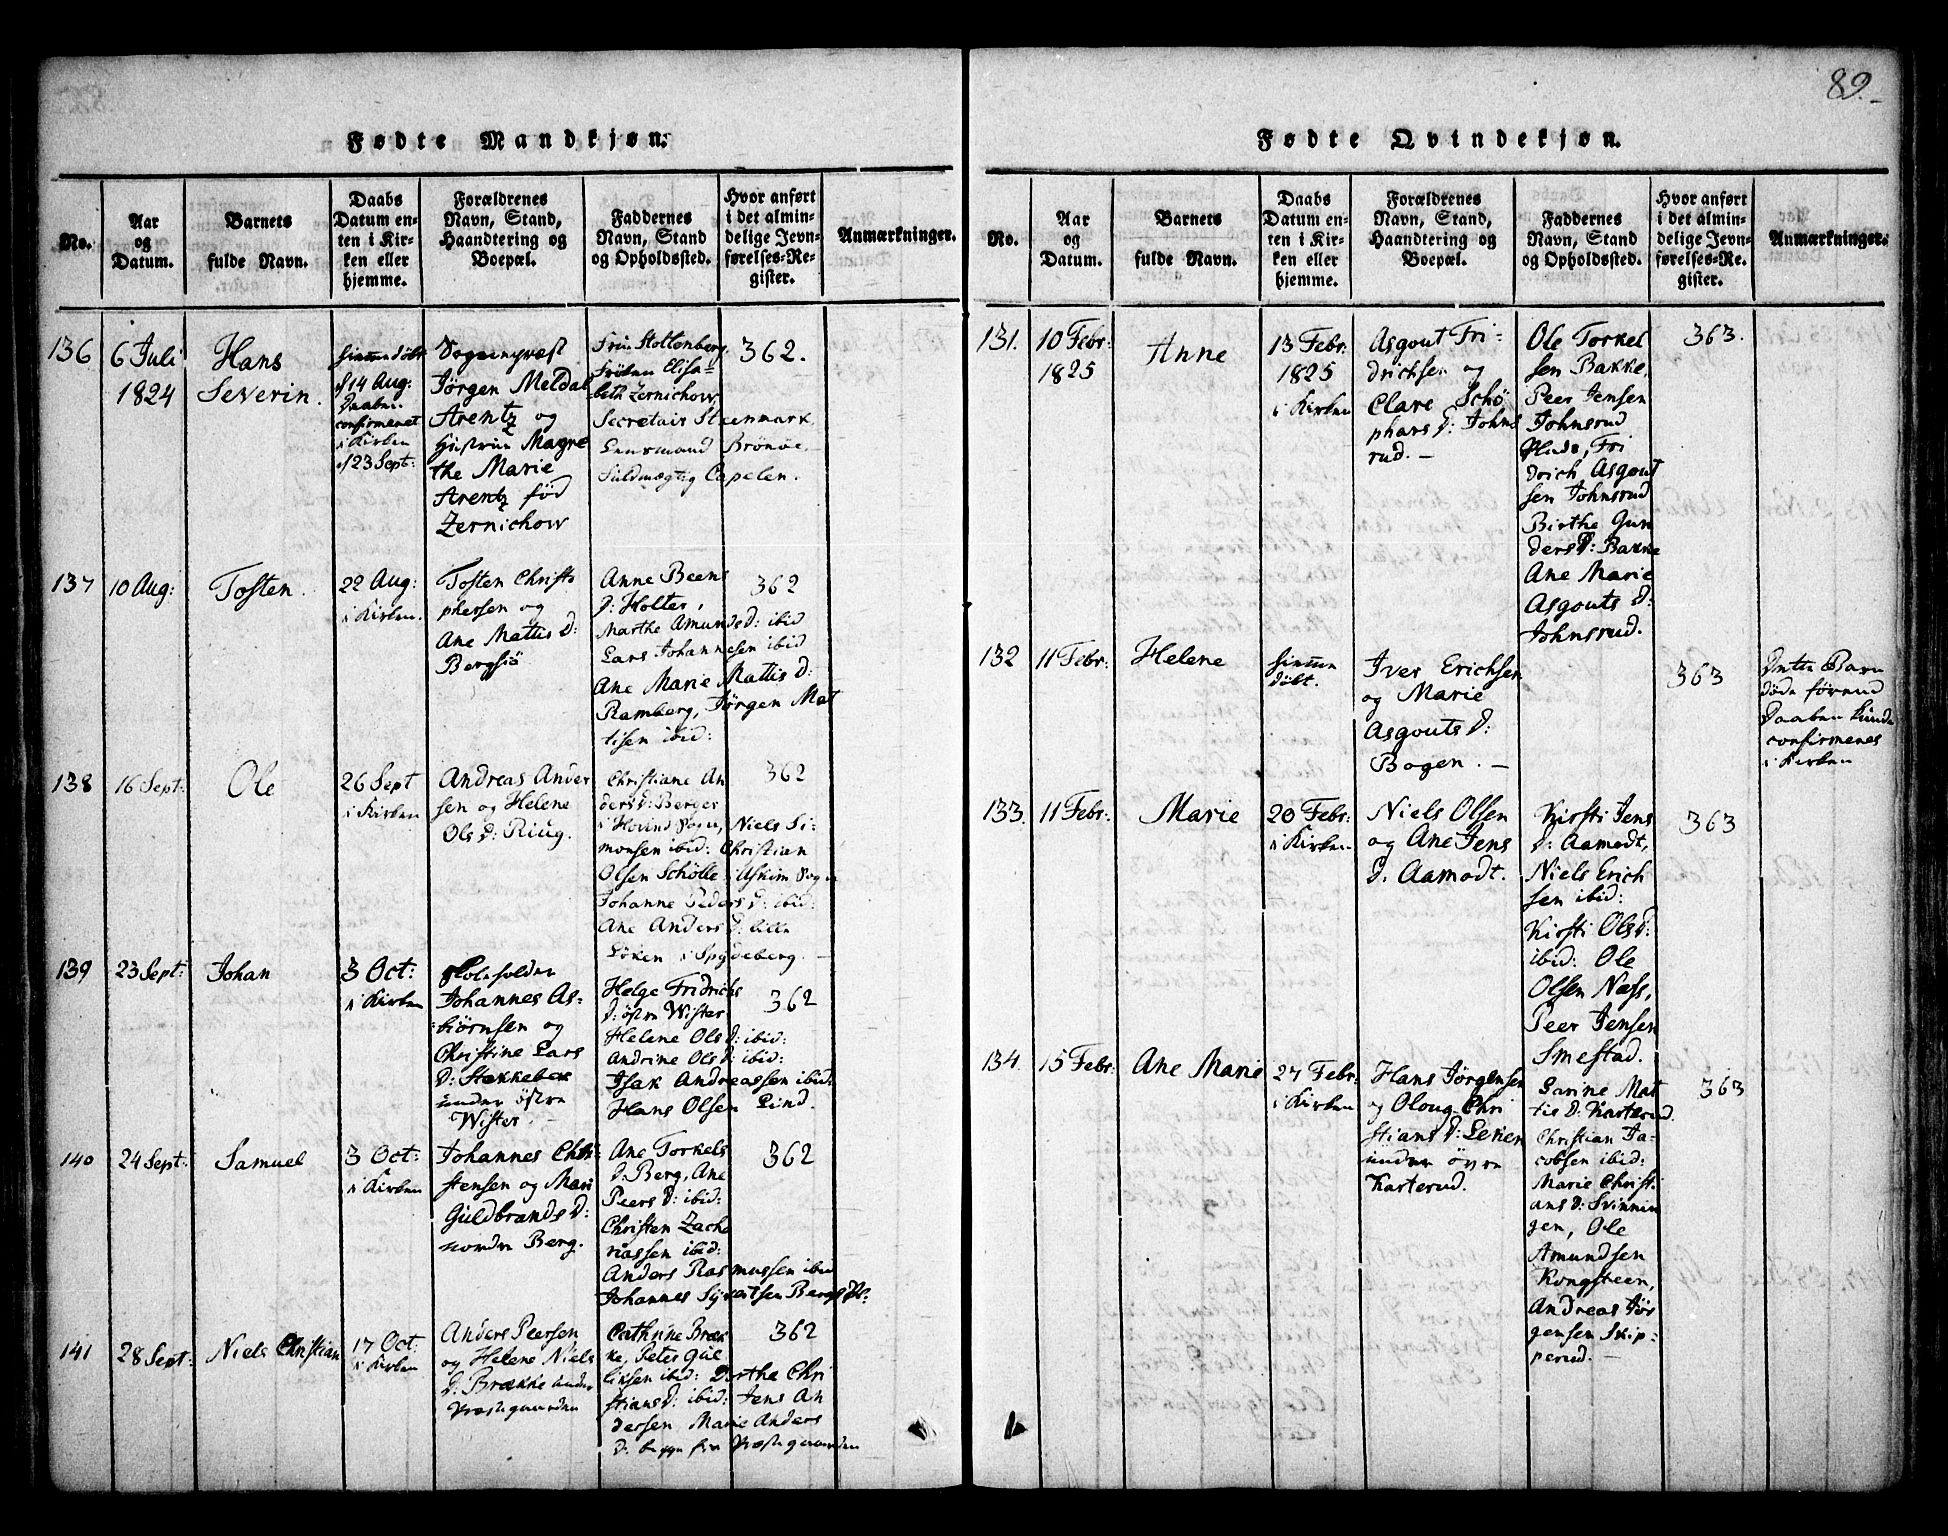 89.
Fødte Mandkjøn.
No.
Aar
og
Datum.
Barnets
fulde Navn.
Daabs
Datum en-
ten i Kir-
ken eller
hjemme.
Forældrenes
Navn, Stand,
Haandtering og
Boepæl.
Faddernes
Navn, Stand
og Opholdssted.
Hvor anført
i det almin-
delige Jevn-
førelses-Re-
gister.
Anmærkninger.
136
6 Juli
1824
Hans
Severin.
hjemmedøbt
d 14 Aug:
Daaben
confirmeret
i Kirken
d 23 Sept:
Sogneprest
Jørgen Meldal
Arentz og
Hustrue Magre
the Marie
Arentz fød
Zernichow
Fru Stoltenberg
Frøken Elisa-
beth Zernichow,
Secretair Steenmark,
Lensmand Brönöe,
Fuldmægtig Capelen.
362.
137
10 Aug:
Tosten.
22 Aug:
i Kirken.
Tosten Christo
phersen og
Ane Mattis D:
Bergsiö
Anne Beens
D: Holter,
Marthe Amunds D: ibid
Lars Johannesen ibid
Ane Marie Mattis D:
Ramberg, Jørgen Mat
tisen ibid:
362
138
16 Sept:
Ole
26 Sept
i Kirken
Andreas Ander
sen og Helene
Ols D: Riug.
Christiane An
ders D: Berger
i Hovind Sogn, Niels Si-
monsen ibid: Christian
Olsen Schölle i Askim Sogn
Johanne Peders D: ibid:
Ane Anders D: lille
Löken i Spydeberg.
362
139
23 Sept:
Johan
3 Oct:
i Kirken
Johannes As-
biörnsen og
Christine Lars
D: Stekkebek
under östre
Wister.
Helge Fridrichs
D: östre Wister
Helene Ols D: ibid:
Andrine Ols D: ibid:
Isak Andreassen ibid:
Hans Olsen Lind.
362
140
24 Sept:
Samuel
3 Oct:
i Kirken
Johannes Chri
stensen og Mari
Guldbrands D:
nordre Berg.
Ane Torkels
D: Berg, Ane
Peers D: ibid:
Christen Zacha
riassen ibid:
Anders Rasmussen ibid
Johannes Syvertsen Bergs
362
141
28 Sept:
Niels Christian
17 Oct:
i Kirken
Anders Peersen
og Helene Niels
D: Brække under
Præstegaarden
Cathrine Bræk
ke, Peter Gul
liksen ibid: Dorthe Chri
stians D: ibid: Jens An
dersen Marie Anders
D: begge fra Præstegaarden
362
Fødte Qvindekjøn.
No.
Aar
og
Datum.
Barnets
fulde Navn.
Daabs
Datum en-
ten i Kir-
ken eller
hjemme.
Forældrenes
Navn, Stand,
Haandtering og
Boepæl.
Faddernes
Navn, Stand
og Opholdssted.
Hvor anført
i det almin-
delige Jevn-
førelses-Re-
gister.
Anmærkninger.
131.
10 Febr:
1825
Anne
13 Febr:
1825
i Kirken
Asgout Fri-
drichsen og
Clare Schö
phars D: Johns
rud.
Ole Torkel
sen Bakke,
Peer Jensen
Johnsrud
Fri
drich Asgout
sen Johnsrud
Birthe Gun
ders D: Bakke
Ane Marie
Asgouts D:
Johnsrud.
363.
132
11 Febr:
Helene
hjemme
döbt.
Iver Erichsen
og Marie
Asgouts D:
Bogen.
363
Dette Barn
döde förend
Daaben kunde
confirmeres
i Kirken
133.
11 Febr:
Marie
20 Febr:
i Kirken
Niels Olsen
og Ane Jens
D: Aamodt.
Kirsti Jens
D: Aamodt,
Niels Erich
sen ibid:
Kirsti Ols D:
ibid: Ole
Olsen Næss,
Peer Jensen
Smestad.
363
134.
15 Febr:
Ane Marie
27 Febr:
i Kirken
Hans Jörgensen
og Oloug Chri
stians D: Lekier
under övre
Karterud.
Larine Mat
tis D: Karterud
Christian Ja-
cobsen ibid:
Marie Christi
ans D: Svinnin
gen, Ole
Amundsen
Kongsteen,
Andreas Jör
gensen Skip-
perud.
363